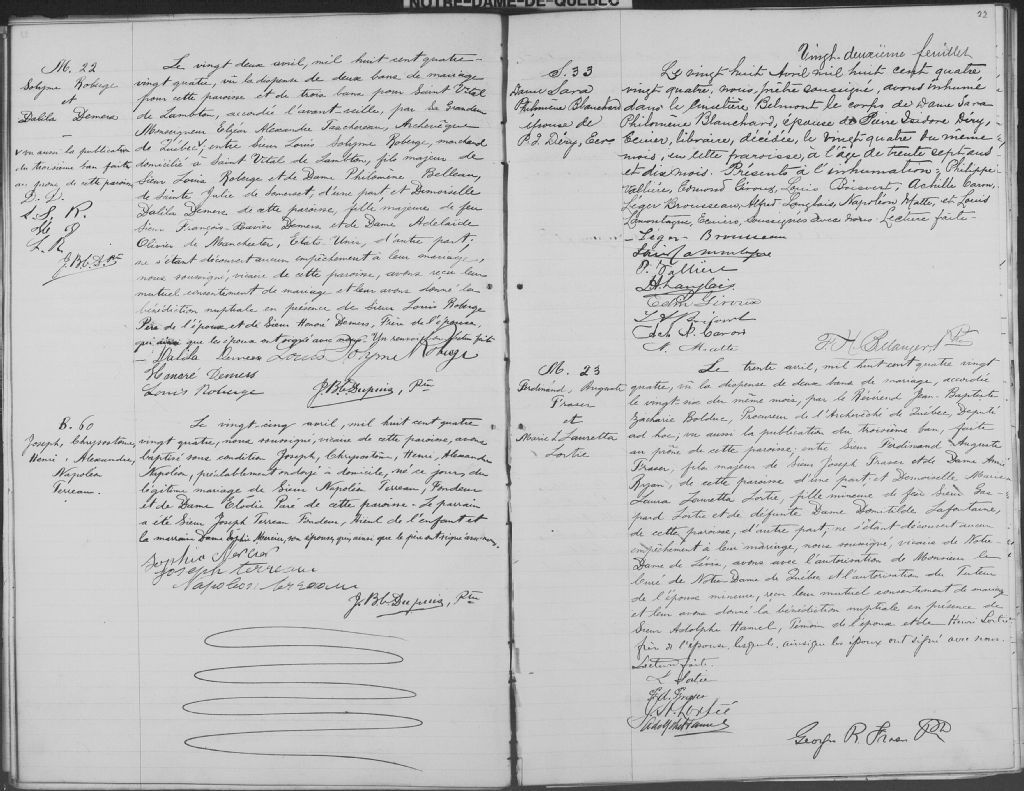 NOTRE-DAME-DE-QUÉBEC
M. 22
Solyme Roberge
et
Dalila Demers
Vu aussi la publication
du troisième ban faite
au prône de cette paroisse
D. D.
L. S. R.
H. D.
L. R.
J. Bte D. Ptre
Le vingt deux avril, mil huit cent quatre-
vingt quatre, vû la dispense de deux bans de mariage
pour cette paroisse et de trois bans pour Saint Vital
de Lambton, accordée l'avant-veille, par Sa Grandeur
Monseigneur Elzéar Alexandre Taschereau, Archevêque
de Québec, entre Sieur Louis Solyme Roberge, marchand
domicilié à Saint Vital de Lambton, fils majeur de
Sieur Louis Roberge et de Dame Philomène Belleau,
de Sainte Julie de Somerset, d'une part et Demoiselle
Dalila Demers de cette paroisse, fille majeure de feu
Sieur François-Xavier Demers et de Dame Adélaïde
Olivier de Manchester, Etats Unis, d'autre part;
ne s'étant découvert aucun empêchement à leur mariage,
nous soussigné, vicaire de cette paroisse, avons reçu leur
mutuel consentement de mariage et leur avons donné la
bénédiction nuptiale en présence de Sieur Louis Roberge
Père de l'époux et de Sieur Honoré Demers, Frère de l'épouse,
qui ainsi que les époux ont signé avec nous. Un renvoi bon. Lecture faite
Dalila Demers Louis Solyme Roberge
Honoré Demers
Louis Roberge J. Bte Dupuis, Ptre
B. 60
Joseph, Chrysostôme,
Henri, Alexandre,
Napoléon
Terreau.
Le vingt-cinq avril, mil huit cent quatre
vingt quatre, nous soussigné, vicaire de cette paroisse, avons
baptisé sous condition Joseph, Chrysostôme, Henri, Alexandre
Napoléon, préalablement ondoyé à domicile, né ce jour, du
légitime mariage de Sieur Napoléon Terreau, Fondeur
et de Dame Elodie Paré de cette paroisse. Le parrain
a été Sieur Joseph Terreau Fondeur, Aïeul de l'enfant et
la marraine Dame Sophie Mercier, son épouse, qui, ainsi que le père ont signé avec nous.
Sophie Mercier
Joseph Terreau
Napoléon Terreau
J. Bte Dupuis, Ptre
22
Vingt deuxième feuillet
S. 33
Dame Sara
Philomène Blanchard
épouse de
P. I. Déry, Ecr
Le vingt huit Avril mil huit cent quatre
vingt quatre, nous, prêtre soussigné, avons inhumé
dans le cimetière Belmont, le corps de Dame Sara
Philomène Blanchard, épouse de Pierre Isidore Déry,
Ecuier, libraire, décédée, le vingt-quatre du même
mois, en cette paroisse, à l'âge de trente sept ans
et dix mois. Présents à l'inhumation; Philippe
Vallière, Edmond Giroux, Louis Boisvert, Achille Caron,
Léger Brousseau, Alfred Langlais, Napoléon Matte, et Louis
Lamontagne, Ecuiers, soussignés avec nous. Lecture faite.
Léger Brousseau
Louis Lamontagne
P. Vallière
A. Langlais
Edm Giroux
L. Boisvert
Ach. P. Caron
N. Matte
F. H. Belanger, Ptre
M. 23
Ferdinand, Auguste
Fraser
et
Marie L. Lauretta
Lortie
Le trente avril, mil huit cent quatre vingt
quatre, vû la dispense de deux bans de mariage, accordée
le vingt-six du même mois, par le Révérend Jean-Baptiste
Zacharie Bolduc, Procureur de l'Archevêché de Québec, Député
ad hoc, vu aussi la publication du troisième ban, faite
au prône de cette paroisse; entre Sieur Ferdinand Auguste
Fraser, fils majeur de Sieur Joseph Fraser et de Dame Anne
Ryan, de cette paroisse d'une part et Demoiselle Marie
Laura Lauretta Lortie, fille mineure de feu Sieur Gas-
pard Lortie et de défunte Dame Domitilde Lafontaine,
de cette paroisse, d'autre part; ne s'étant découvert aucun
empêchement à leur mariage, nous soussigné, vicaire de Notre-
Dame de Lévis, avons avec l'autorisation de Monsieur le
Curé de Notre-Dame de Québec et l'autorisation du Tuteur
de l'épouse mineure, reçu leur mutuel consentement de mariage
et leur avons donné la bénédiction nuptiale en présence de
Sieur Adolphe Hamel, Témoin de l'époux et de Henri Lortie
frère de l'épouse, lesquels, ainsi que les époux ont signé avec nous.
Lecture faite.
L. Lortie
Fd. Fraser
J. H. Lortie
Adolphe Hamel
Georges R Fraser Ptre